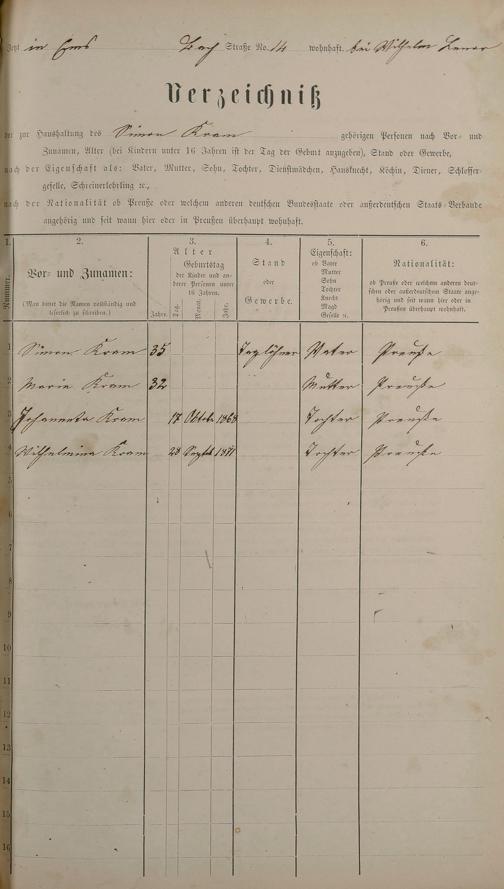 Jetzt in Ems Bach Straße No. 14 wohnhaft bei Wilhelm
Verzeichniß
der zur Haushaltung des Simon Kram gehörigen Personen nach Vor- und
Zunamen, Alter (bei Kindern unter 16 Jahren ist der Tag der Geburt anzugeben), Stand oder Gewerbe,
nach der Eigenschaft als: Vater, Mutter, Sohn, Tochter, Dienstmädchen, Hausknecht, Köchin, Diener, Schlosser-
geselle, Schreinerlehrling ꝛc.,
nach der Nationalität ob Preuße oder welchem anderen deutschen Bundesstaate oder außerdeutschen Staats-Verbande
angehörig und seit wann hier oder in Preußen überhaupt wohnhaft.
1. 2. 3. 4. 5. 6.
Nummer.
Vor- und Zunamen:
(Man bittet die Namen vollständig und
leserlich zu schreiben.)
Alter
Geburtstag
der Kinder und an-
derer Personen unter
16 Jahren.
Jahre. Tag. Monat. Jahr.
Stand
oder
Gewerbe.
Eigenschaft:
ob Vater
Mutter
Sohn
Tochter
Knecht
Magd
Geselle ꝛc.
Nationalität:
ob Preuße oder welchem anderen deut-
schen oder außerdeutschen Staate ange-
hörig und seit wann hier oder in
Preußen überhaupt wohnhaft.
1 Simon Kram 35 Taglöhner Vater Preuße
2 Maria Kram 32 Mutter Preuße
3 Johannata Kram 17 Oktobr 1868 Tochter Preuße
4 Wilhelmina Kram 28 Septbr 1871 Tochter Preuße
5
6
7
8
9
10
11
12
13
14
15
16